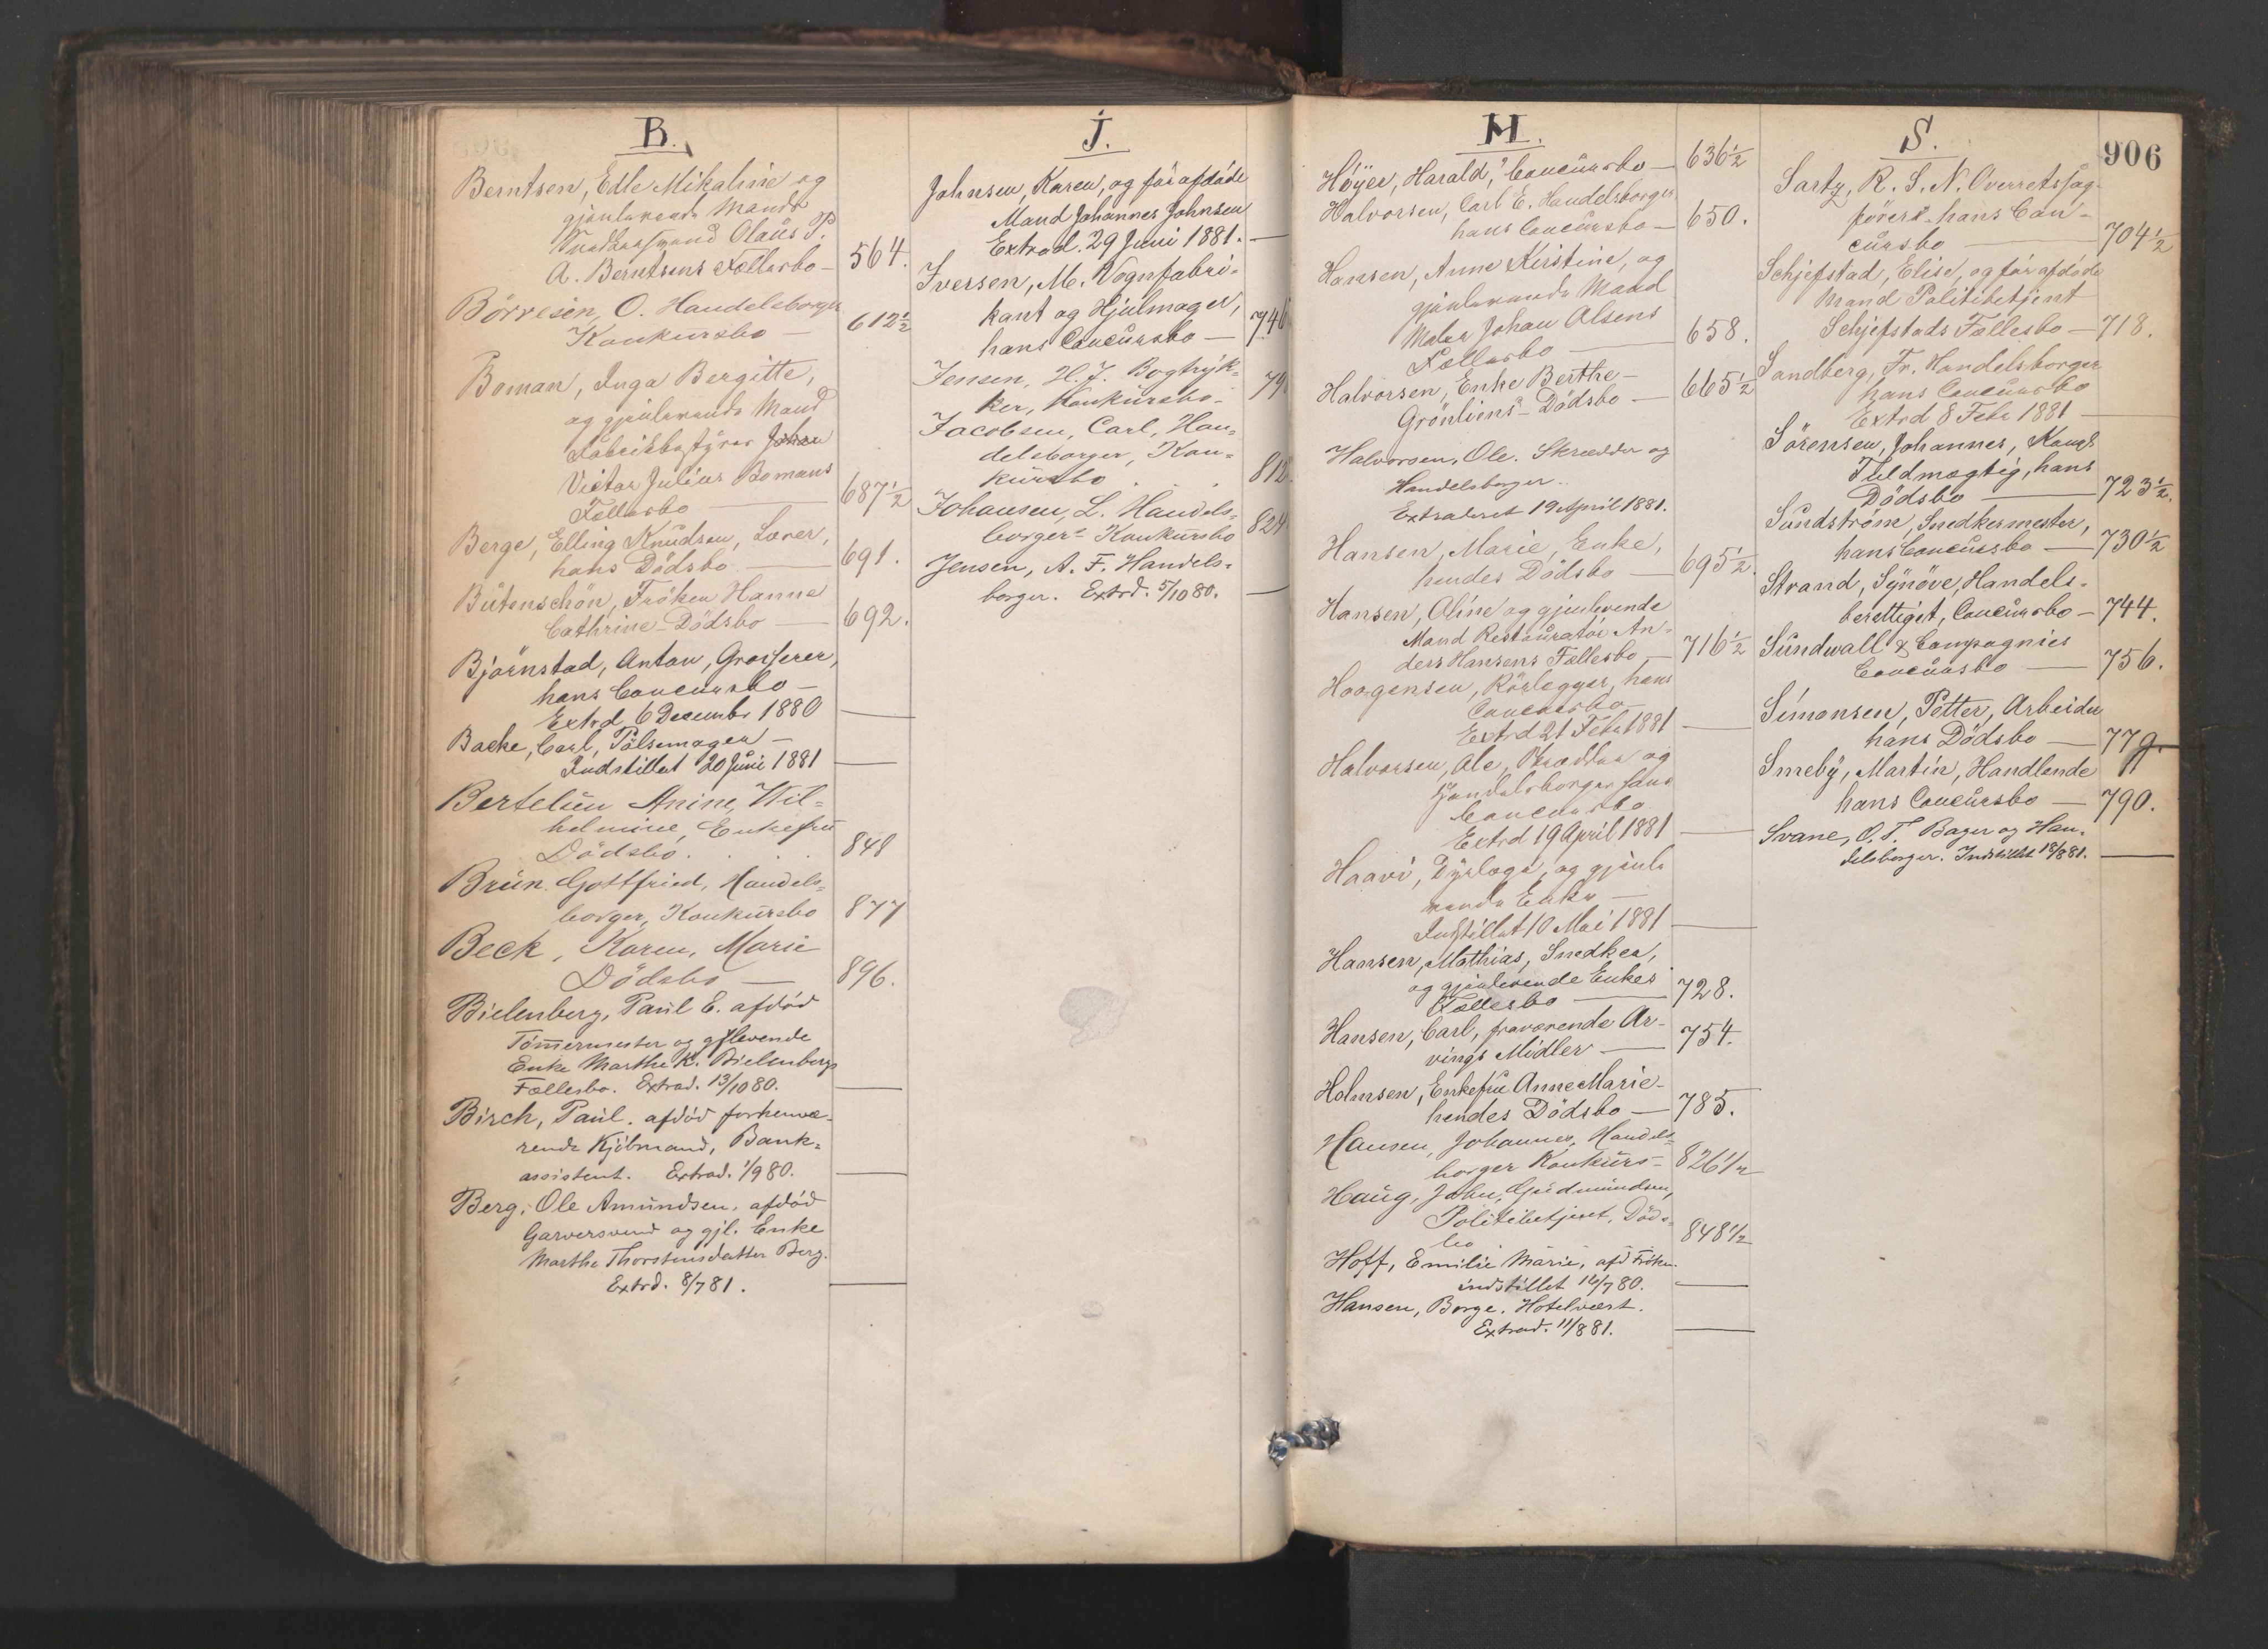 B.
Berntsen, Edle Mikaline og
gjenlevende Mands
Olaus P.
A. Berntsens Fællesbo - 564.
Börresen, O. Handelsborger
Konkursbo - 612½
Boman, Inga Bergitte,
og gjenlevende Mand
Fabrikbestyrer Johan
Victor Julius Bomans
Fællesbo - 687½
Berge, Elling Knudsen, Lærer,
hans Dödsbo - 691.
Bütenschön, Fröken Hanna
Cathrine - Dödsbo - 692.
Björnstad, Anton, Grosserer,
hans Concursbo -
Extrd 6 Decembr 1880 -
Backe, Carl, Pölsemager -
Indstillet 20 Juni 1881 -
Bertelsen Anine, Wil=
helmine, Enkefru
Dödsbo. 848
Brün. Gottfried, Handels=
borger, Konkursbo 877
Beck, Karen, Marie
Dödsbo - 896.
Bielenberg, Paul E. afdöd
Tömmermester og gjlevende
Enke Marthe K. Bielenbergs
Fællesbo. Extrad. 13/10 80. -
Birch, Paul. afdöd forhenvæ-
rende Kjöbmand, Bank=
assistent. Extrad. 1/9 80. -
Berg, Ole Amundsen, afdöd
Garversvend og gjl. Enke
Marthe Thorstensdatter Berg.
Extrd. 8/7 81. -
J.
Johnsen, Karen, og før afdøde
Mand Johannes Johnsen
Extrad. 29 Juni 1881. -
Iversen, M. Vognfabri-
kant og Hjulmager,
hans Concursbo - 746
Jensen, H. J. Bogtryk=
ker, Konkursbo - 79
Jacobsen, Carl, Han=
delsborger, Kon=
kursbo . . 812.
Johansen, L. Handels=
borgers Konkursbo 824
Jensen, A. F. Handels=
borger. Extrd. 5/10 80. -
H.
Høyer, Harald, Concursbo - 636½
Halvorsen, Carl E. Handelsborger
hans Concursbo - 650.
Hansen, Anne Kirstine, og
gjenlevende Mand
Maler Johan Olsens
Fællesbo - 658.
Halvorsen, Enke Berthe -
Grönliens - Dödsbo - 665½
Halvorsen, Ole. Skrædder og
Handelsborger..
Extraderet 19 April 1881.
Hansen, Marie, Enke,
hendes Dödsbo - 695½.
Hansen, Oline og gjenlevende
Mand Restauratör An-
ders Hansens Fællesbo - 716½
Haagensen, Rörlegger, hans
Concursbo
Extrd 21 Febr 1881 -
Halvorsen, Ole, Skrædder og
Handelsborger hans
Concursbo
Extrd 19 April 1881 -
Haavi, Dyrlæge, og gjenle
vende Enke -
Indstillet 10 Mai 1881 -
Hansen, Mathias, Snedker,
og gjenlevende Enkes
Fællesbo - 728.
Hansen, Carl, fraværende Ar-
vings Midler - 754.
Holmsen, Enkefru Anne Marie -
hendes Dödsbo - 785.
Hansen, Johannes, Handels=
borger Konkurs - 826 1/2
Haug, John, Gudmundsen,
Politibetjent, Döds=
bo 848 1/2
Hoff, Emilie Marie, afd Fröken
indstillet 16/7 80. -
Hansen, Borge. Hotelvært.
Extrad. 11/8 81. -
906
S.
Sartz, R. S. N. Overretssag-
förers hans Con-
cursbo - 704½
Schjefstad, Elise, og før afdøde
Mand Politibetjent
Schjefstads Fællesbo - 718.
Sandberg, Fr. Handelsborger
hans Concursbo
Extrd 8 Febr 1881 -
Sörensen, Johannes,
Fuldmægtig, hans
Dödsbo - 723½.
Sundström, Snedkermester,
hans Concursbo - 730½
Strand, Synöve, Handels-
berettiget, Concursbo - 744.
Sundwall & Compagnies
Concursbo - 756.
Simonsen, Petter, Arbeider
hans Dödsbo - 779.
Smeby, Martin, Handlende
hans Concursbo - 790.
Svane, O. T. Bager og Han=
delsborger. Indstillet 18/8 81. -